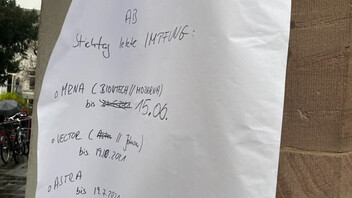 AB
Stichtag letzte IMPFUNG:
o MRNA (BIONTECH//MODERNA)
bis 15.06.
o VECTOR ( // )
bis 19.10.2021
o ASTRA
bis 19.7.2021